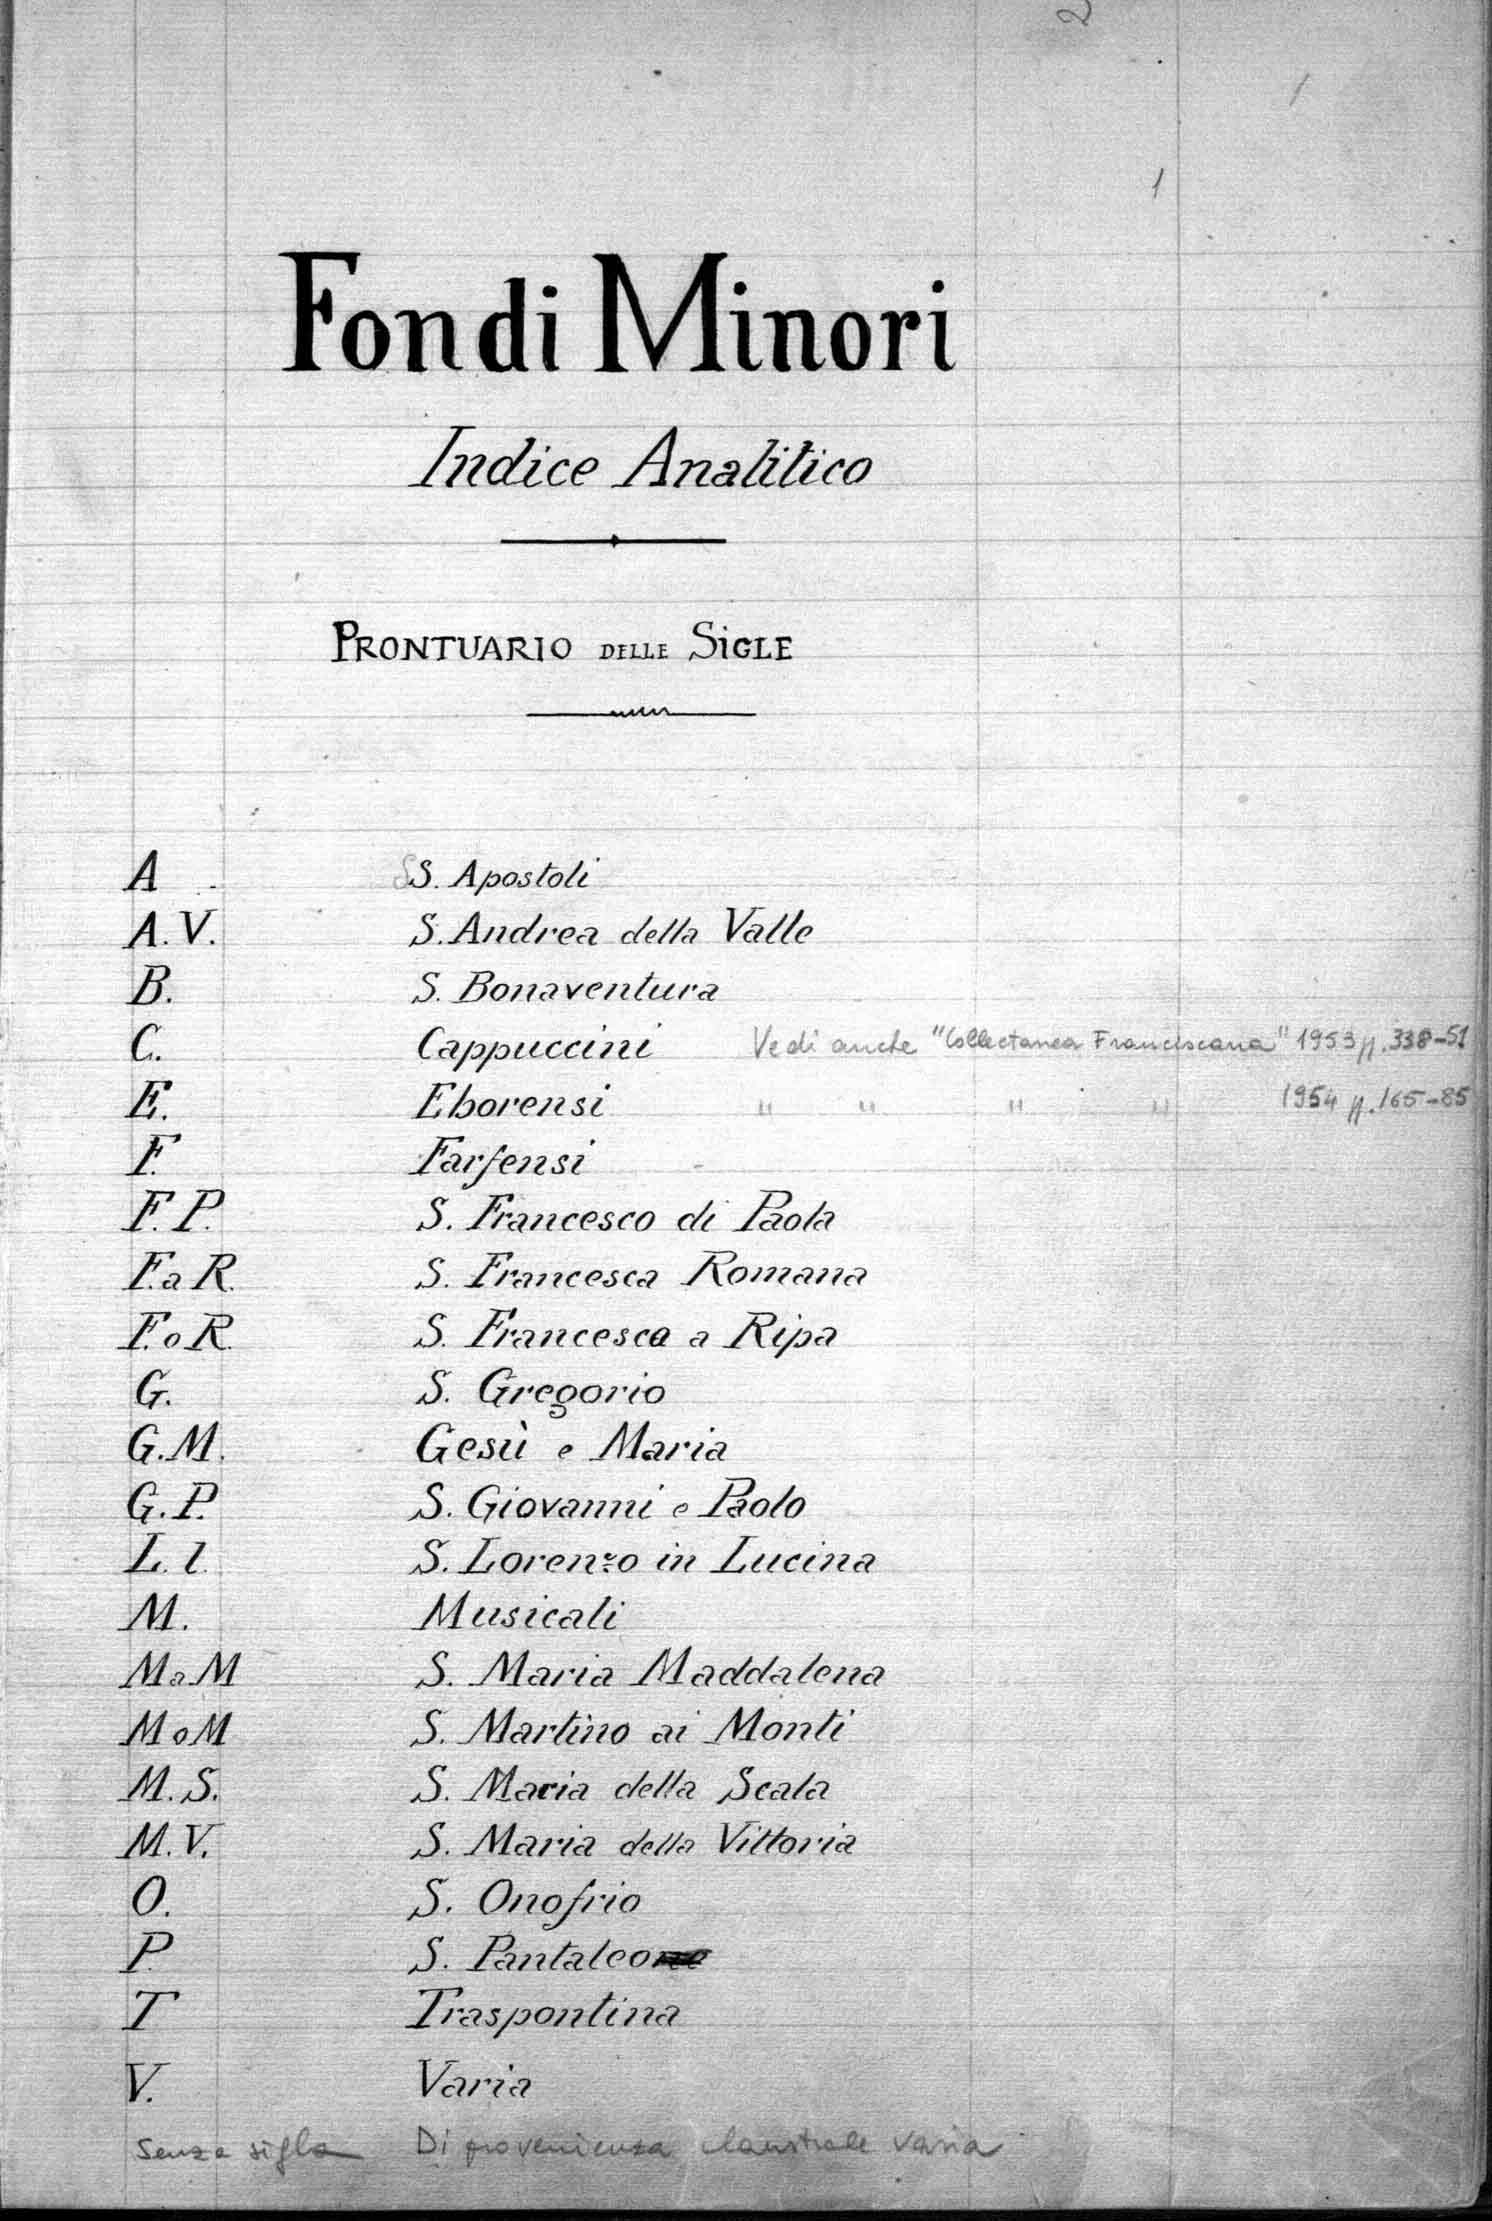 2
1
1
Fondi Minori
Indice Analitico
PRONTUARIO DELLE SIGLE
A SS. Apostoli
A.V. S. Andrea della Valle
B. S. Bonaventura
C. Cappuccini Vedi anche "Collectanea Franciscana" 1953 pp. 338-51
E. Eborensi " " " " 1954 pp. 165-85
F. Farfensi
F. P. S. Francesco di Paola
F.a R. S. Francesca Romana
F.o R. S. Francesco a Ripa
G. S. Gregorio
G.M. Gesù e Maria
G.P. S. Giovanni e Paolo
L. l. S. Lorenzo in Lucina
M. Musicali
MaM S. Maria Maddalena
MoM S. Martino ai Monti
M.S. S. Maria della Scala
M.V. S. Maria della Vittoria
O. S. Onofrio
P. S. Pantaleone
T Traspontina
V. Varia
Senza sigla Di provenienza claustrale varia